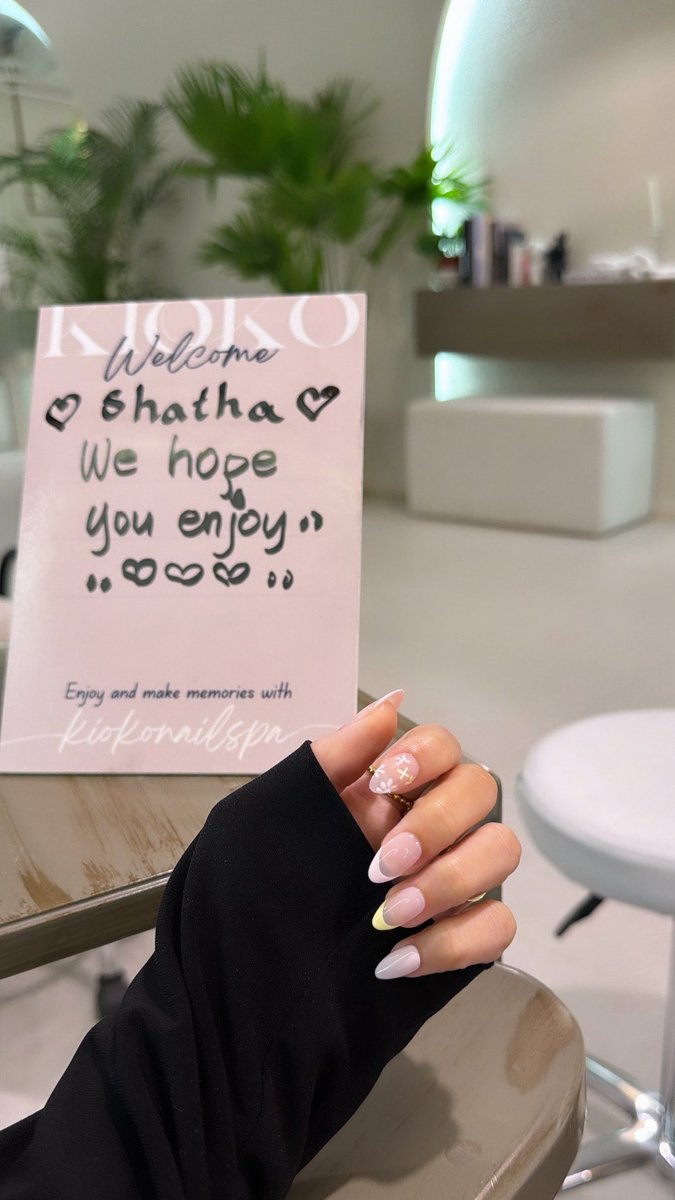 KIOKO
Welcome
♡ Shatha ♡
We hope
you enjoy
♡♡♡
Enjoy and make memories with
kiokonailspa